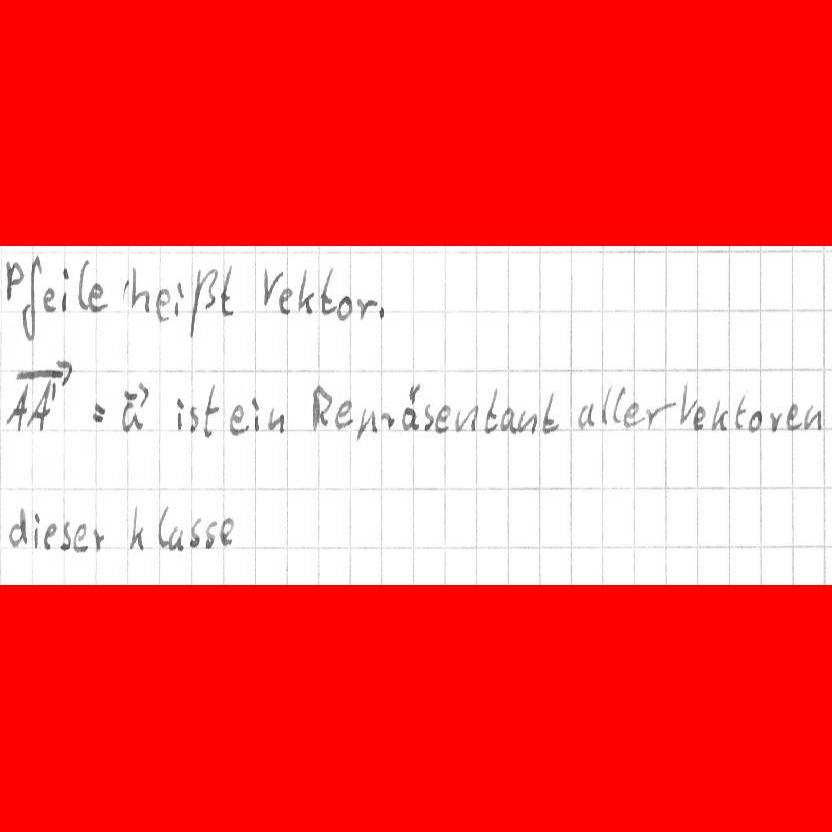 Pfeile heißt Vektor.
$\overrightarrow{AA'} = \vec{a}$ ist ein Repräsentant aller Vektoren
dieser Klasse